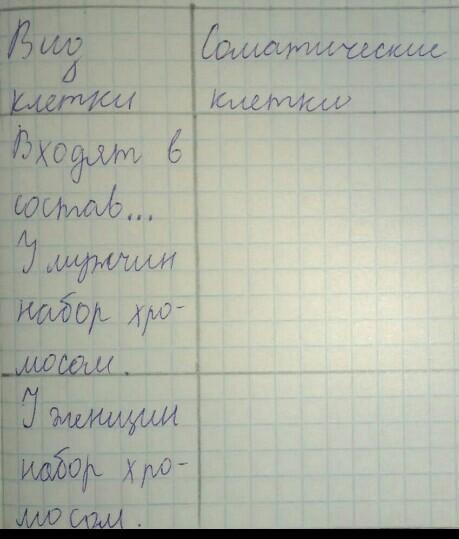 Вид Соматические
клетки клетки
Входят в
состав...
У мужчин
набор хро-
мосом.
У женщин
набор хро-
мосом.